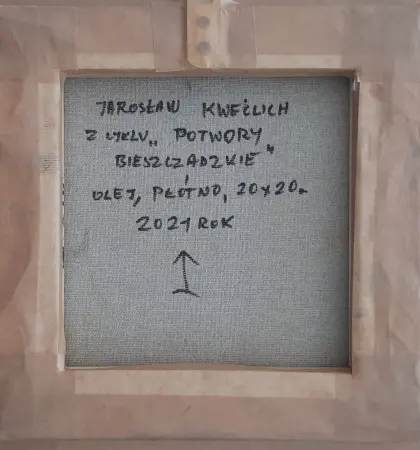 JAROSŁAW KWEŹLICH
Z CYKLU „POTWORY
BIESZCZADZKIE"
OLEJ, PŁÓTNO, 20x20.
2021 ROK